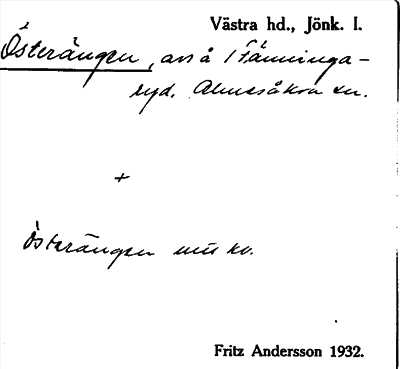 Västra hd., Jönk. l.
Österängen, avs å 1 Fänninga-
ryd, Almesåkra sn.
+
Österängen
Fritz Andersson 1932.